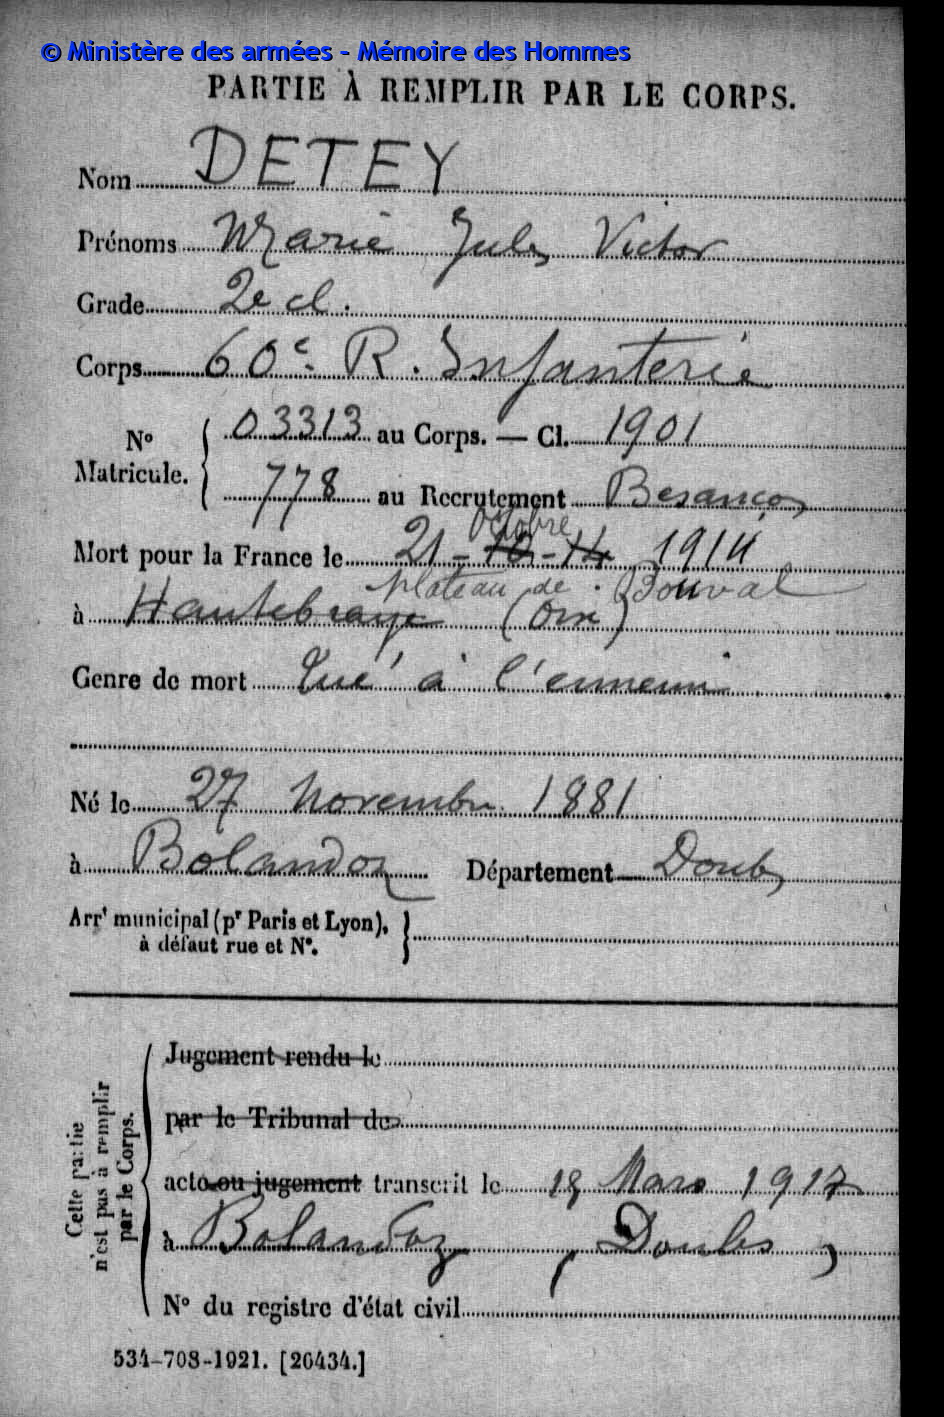 © Ministère des armées - Mémoire des Hommes
PARTIE À REMPLIR PAR LE CORPS.
Nom DETEY
Prénoms Marie Jules Victor
Grade 2e cl.
Corps 60e R. Infanterie
No Matricule. { 03313 au Corps. — Cl. 1901
778 au Recrutement Besançon
octobre
Mort pour la France le 21 - 10 - 14 1914
plateau de Bouval
à Hautebraye (Oise)
Genre de mort Tué à l'ennemi
Né le 27 Novembre 1881
à Bolandoz Département Doubs
Arrt municipal (pr Paris et Lyon), à défaut rue et No. }
Cette partie n'est pas à remplir par le Corps. {
Jugement rendu le
par le Tribunal de
acte ou jugement transcrit le Mars 1917
à Bolandoz, Doubs,
No du registre d'état civil
534-708-1921. [26434.]